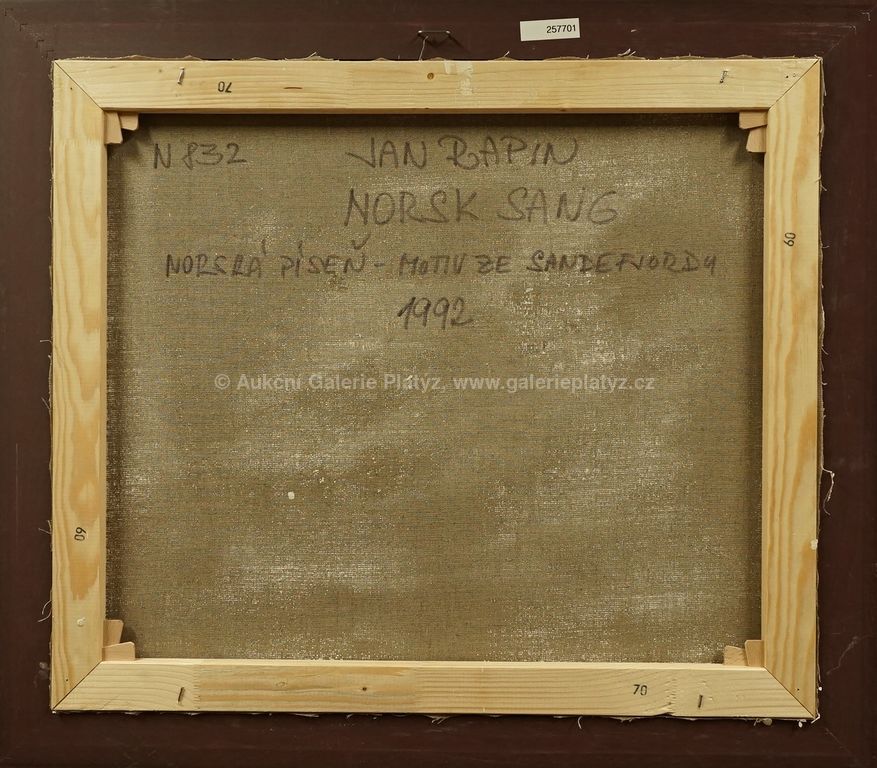 257701
70
N 832 JAN RAPIN
NORSK SANG
60
NORSKÁ PÍSEŇ - MOTIV ZE SANDEFJORDU
1992
© Aukční Galerie Platýz, www.galerieplatyz.cz
60
70